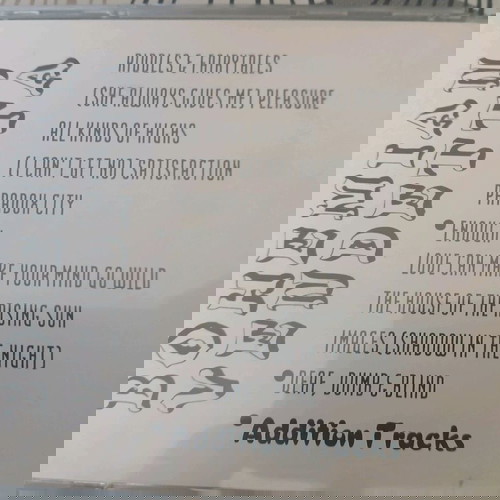 RIDDLES & FAIRYTALES
(SHE ALWAYS GIVES ME) PLEASURE
ALL KINDS OF HIGHS
(I CAN'T GET NO) SATISFACTION
PARADOX CITY
ENOUGH
LOVE CAN MAKE YOUR MIND GO WILD
THE HOUSE OF THE RISING SUN
IMAGES (SHADOW IN THE NIGHT)
DEAF, DUMB & BLIND
BOHEMIAN
VENDETTA
*Addition Tracks